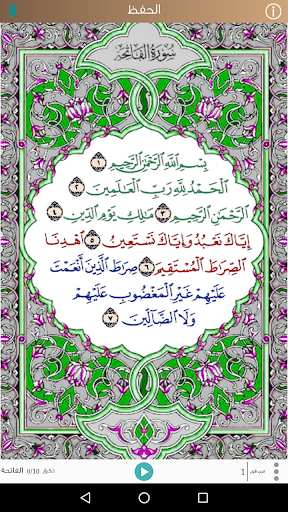 الحفظ
سورة الفاتحة
بِسْمِ اللَّهِ الرَّحْمَٰنِ الرَّحِيمِ ١
الْحَمْدُ لِلَّهِ رَبِّ الْعَٰلَمِينَ ٢
الرَّحْمَٰنِ الرَّحِيمِ ٣ مَٰلِكِ يَوْمِ الدِّينِ ٤
إِيَّاكَ نَعْبُدُ وَإِيَّاكَ نَسْتَعِينُ ٥ اهْدِنَا
الصِّرَٰطَ الْمُسْتَقِيمَ ٦ صِرَٰطَ الَّذِينَ أَنْعَمْتَ
عَلَيْهِمْ غَيْرِ الْمَغْضُوبِ عَلَيْهِمْ
وَلَا الضَّالِّينَ ٧
الجزء الأول 1
تكرار 0/10 الفاتحة